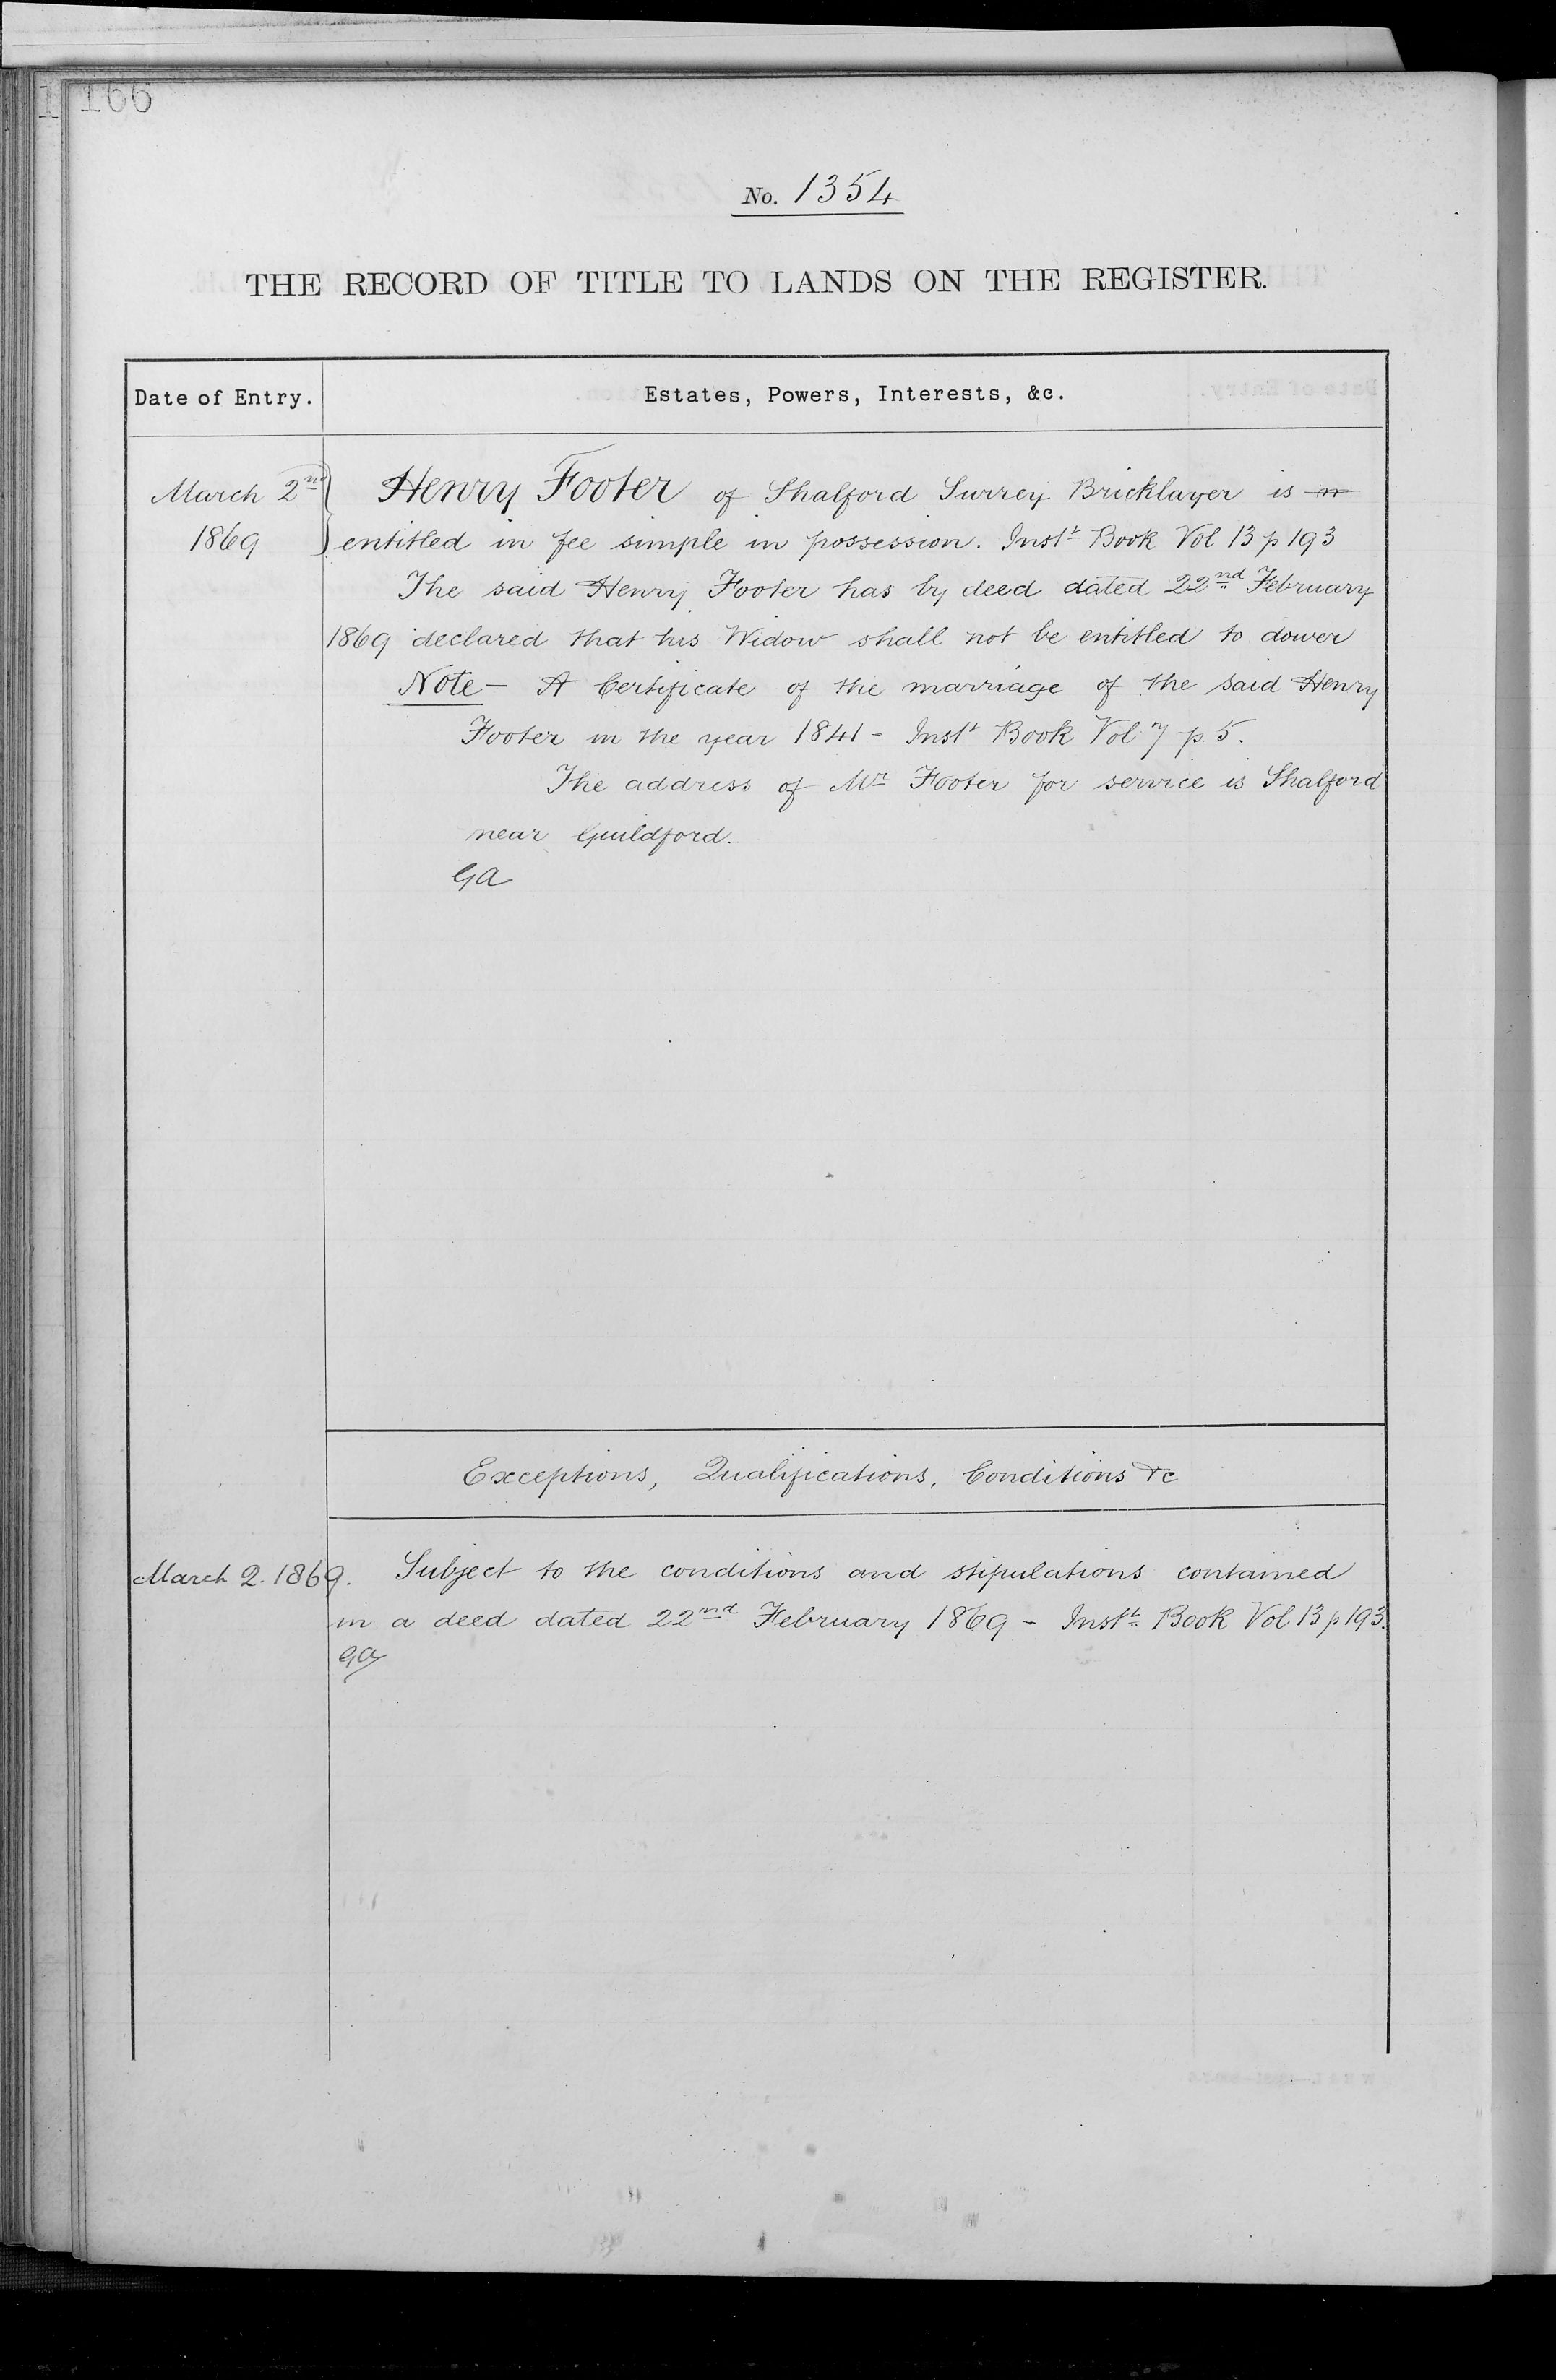 166
No. 1354
THE RECORD OF TITLE TO LANDS ON THE REGISTER.
Date of Entry.
Estates, Powers, Interests, &c.
March 2nd
1869
Henry Footer of Shalford Surrey Bricklayer is in
entitled in fee simple in possession. Instt Book Vol 13 p 193
The said Henry Footer has by deed dated 22nd February
1869 declared that his Widow shall not be entitled to dower
Note - A Certificate of the marriage of the said Henry
Footer in the year 1841 - Instt Book Vol 7 p. 5.
The address of Mr Footer for service is Shalford
near Guildford.
GA
Exceptions, Qualifications, Conditions &c
March 2. 1869.
Subject to the conditions and stipulations contained
in a deed dated 22nd February 1869 - Instt Book Vol 13 p 193.
GA